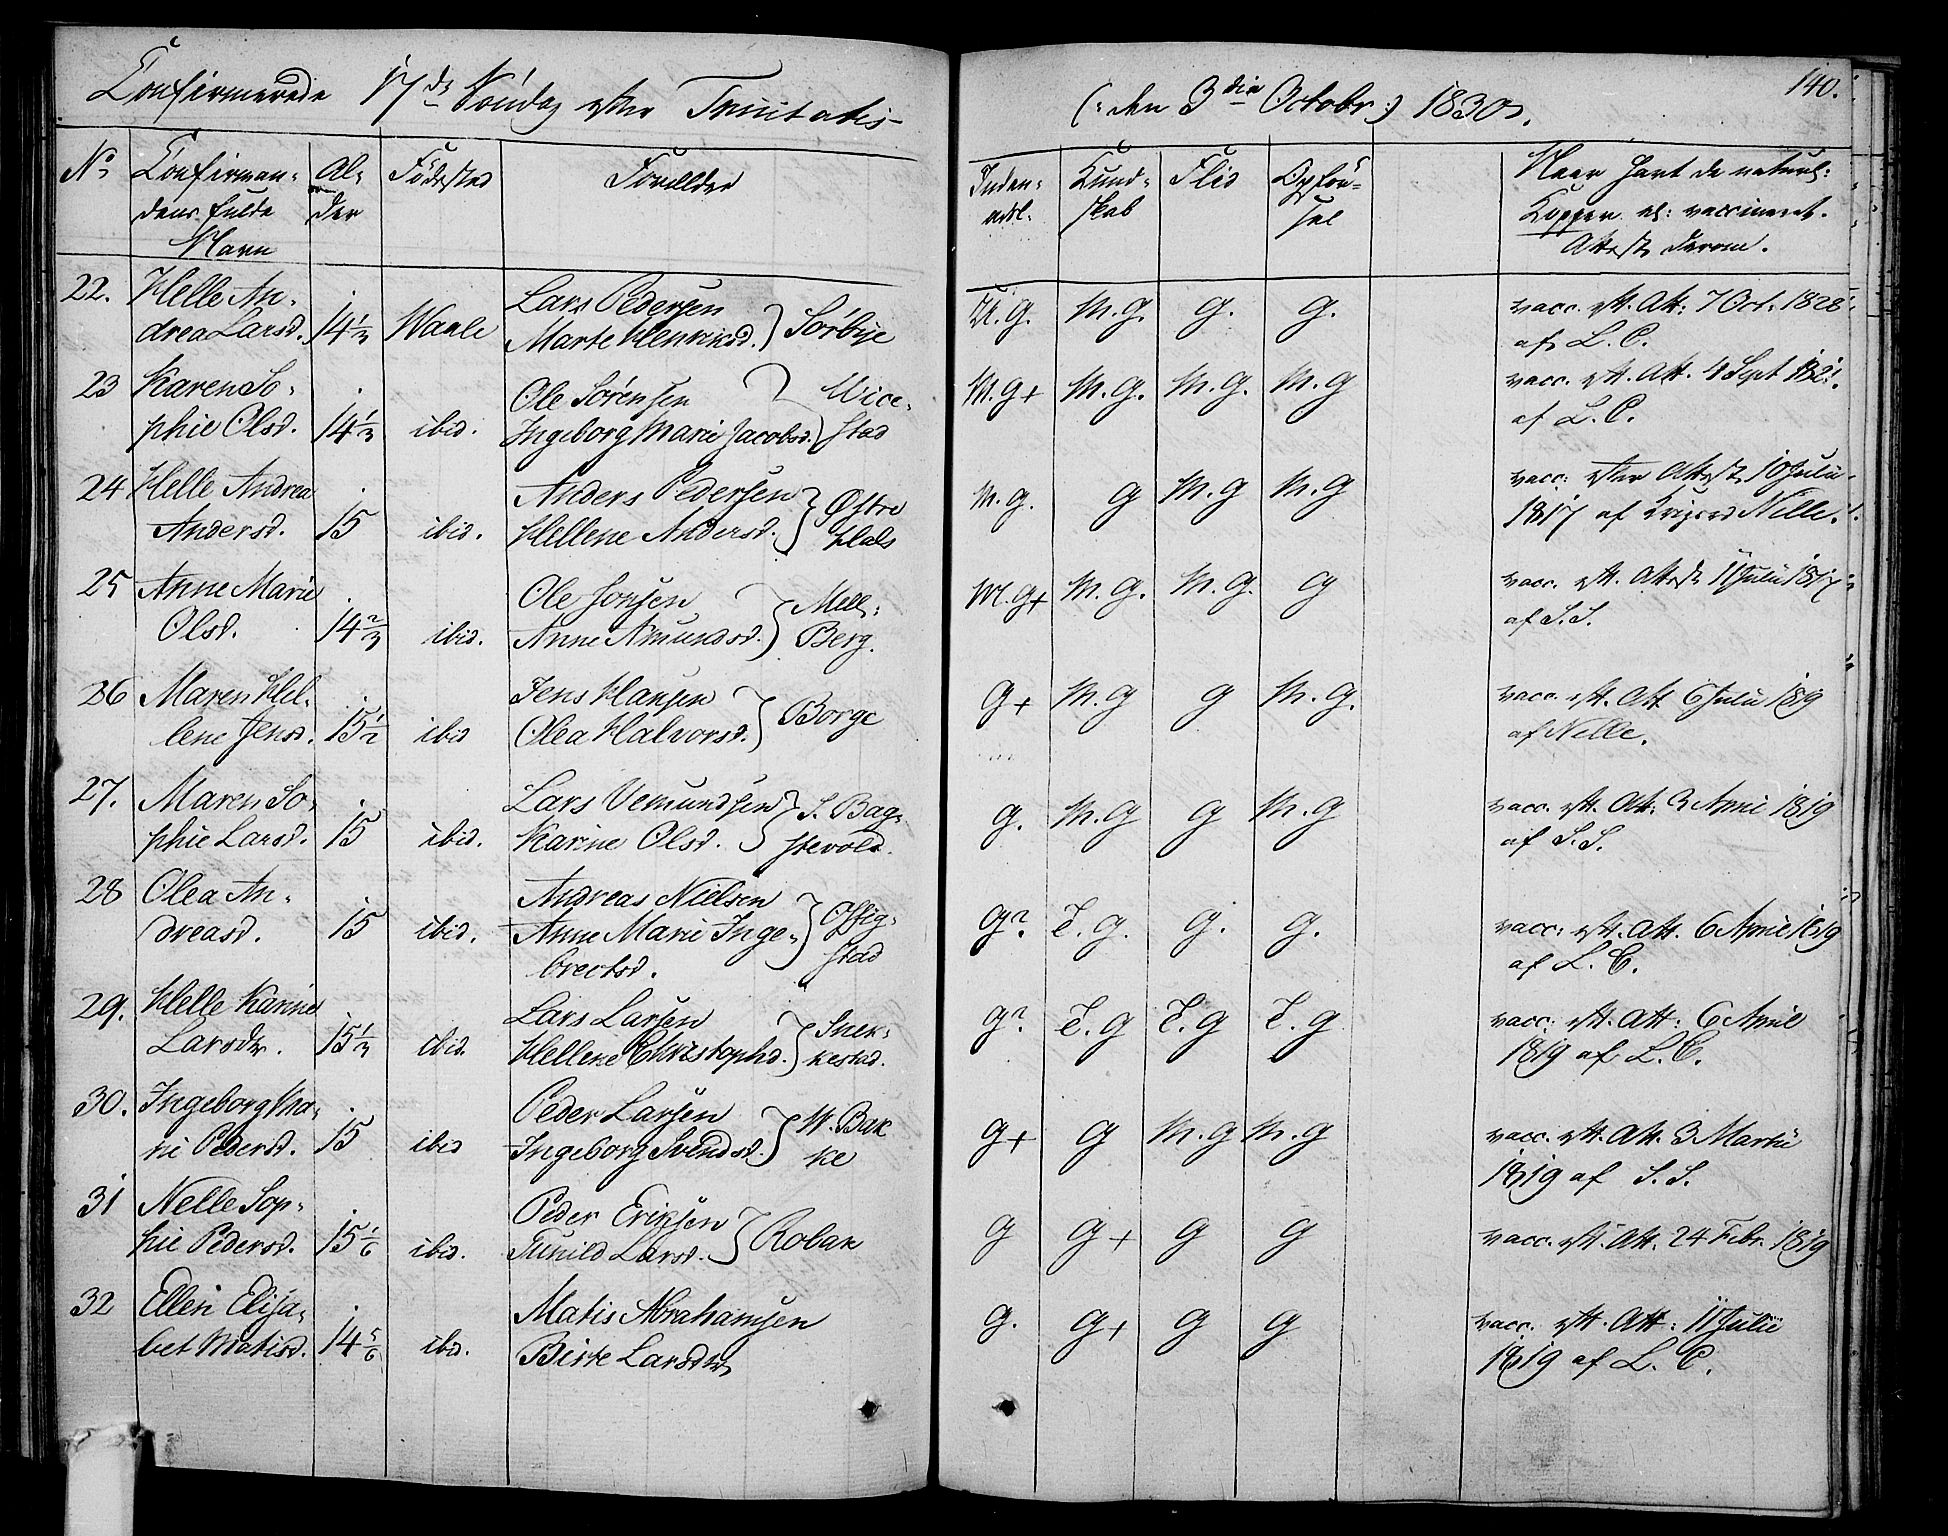 Confirmerede 17de Søndag efter Trinitatis
(: den 3die Octobr:) 1830.
140.
No Confirman- Al- Födested Forælldre Inden- Kund- Flid Opför- Naar havt de naturl:
dens fulde der adsl: skab sel Kopper el: vaccineret.
Navn Attest derom.
22. Helle An- Lars Pedersen U.g. M.g. g. g. vacc. eft. Att: 7 Oct. 1828
drea Larsd. 14 1/3 Waale Marte Henriksd. } Sørbye af L. C.
23 Karen So- Ole Sörensen M.g+ M.g. M.g. M.g vacc. eft. Att. 4 Sept 1821.
phie Olsd. 14 1/3 ibid. Ingeborg Marie Jacobsd. } stad af L. C.
24 Helle Andrea Anders Pedersen Østre M.g. g M.g M.g vacc. efter Attest 10 Julii
Andersd. 15 ibid. Hellene Andersd. } Hals 1817 af Nille.
25 Anne Marie Ole M.g+ M.g. M.g. g vacc. eft. Attest 11 Julii 1817
Olsd. 14 2/3 ibid. Anne Amundsd. } Berg. af S.S.
26 Maren Hel- Jens Hansen g+ M.g g M.g. vacc. eft. Att 6 Julii 1819
lene Jensd. 15 1/2 ibid Olea Halvorsd. } Borge af Nille.
27. Maren So- Lars Vemundsen S. Bag- g. M.g g M.g vacc. eft. Att: 3 April 1819
phie Larsd. 15 ibid. Karine Olsd. } stevold. af S.S.
28 Olea An- Andreas Nielsen g? T.g. g. g. vacc: eft. Att. 6 April 1819
dreasd. 15 ibid. Anne Marie Inge- } stad af L. C.
brectsd.
29. Helle Karine Lars Larsen g? T.g T.g T.g vacc: eft. Att: 6 April
Larsdtr. 15 1/3 ibid. Hellene Christophd. } kestad. 1819 af L. C.
30. Ingeborg Ma- Peder Larsen W. Bak g+ g M.g M.g vacc. eft. Att. 3 Martii
ri Pedersd. 15 ibid Ingeborg Svendsd. } ke 1819 af S.S.
31 Nelle Sop- Peder Eriksen g g+ g g vacc. eft. Att. 24 Febr. 1819
hie Pedersd. 15 1/6 ibid. Gunild Larsd. } Robak
32 Ellen Elisa- Matis Abrahamsen g. g+ g g vacc. eft. Att: 11 Julii
bet Matisd. 14 5/6 ibid. Birte Larsdtr 1819 af L. C.